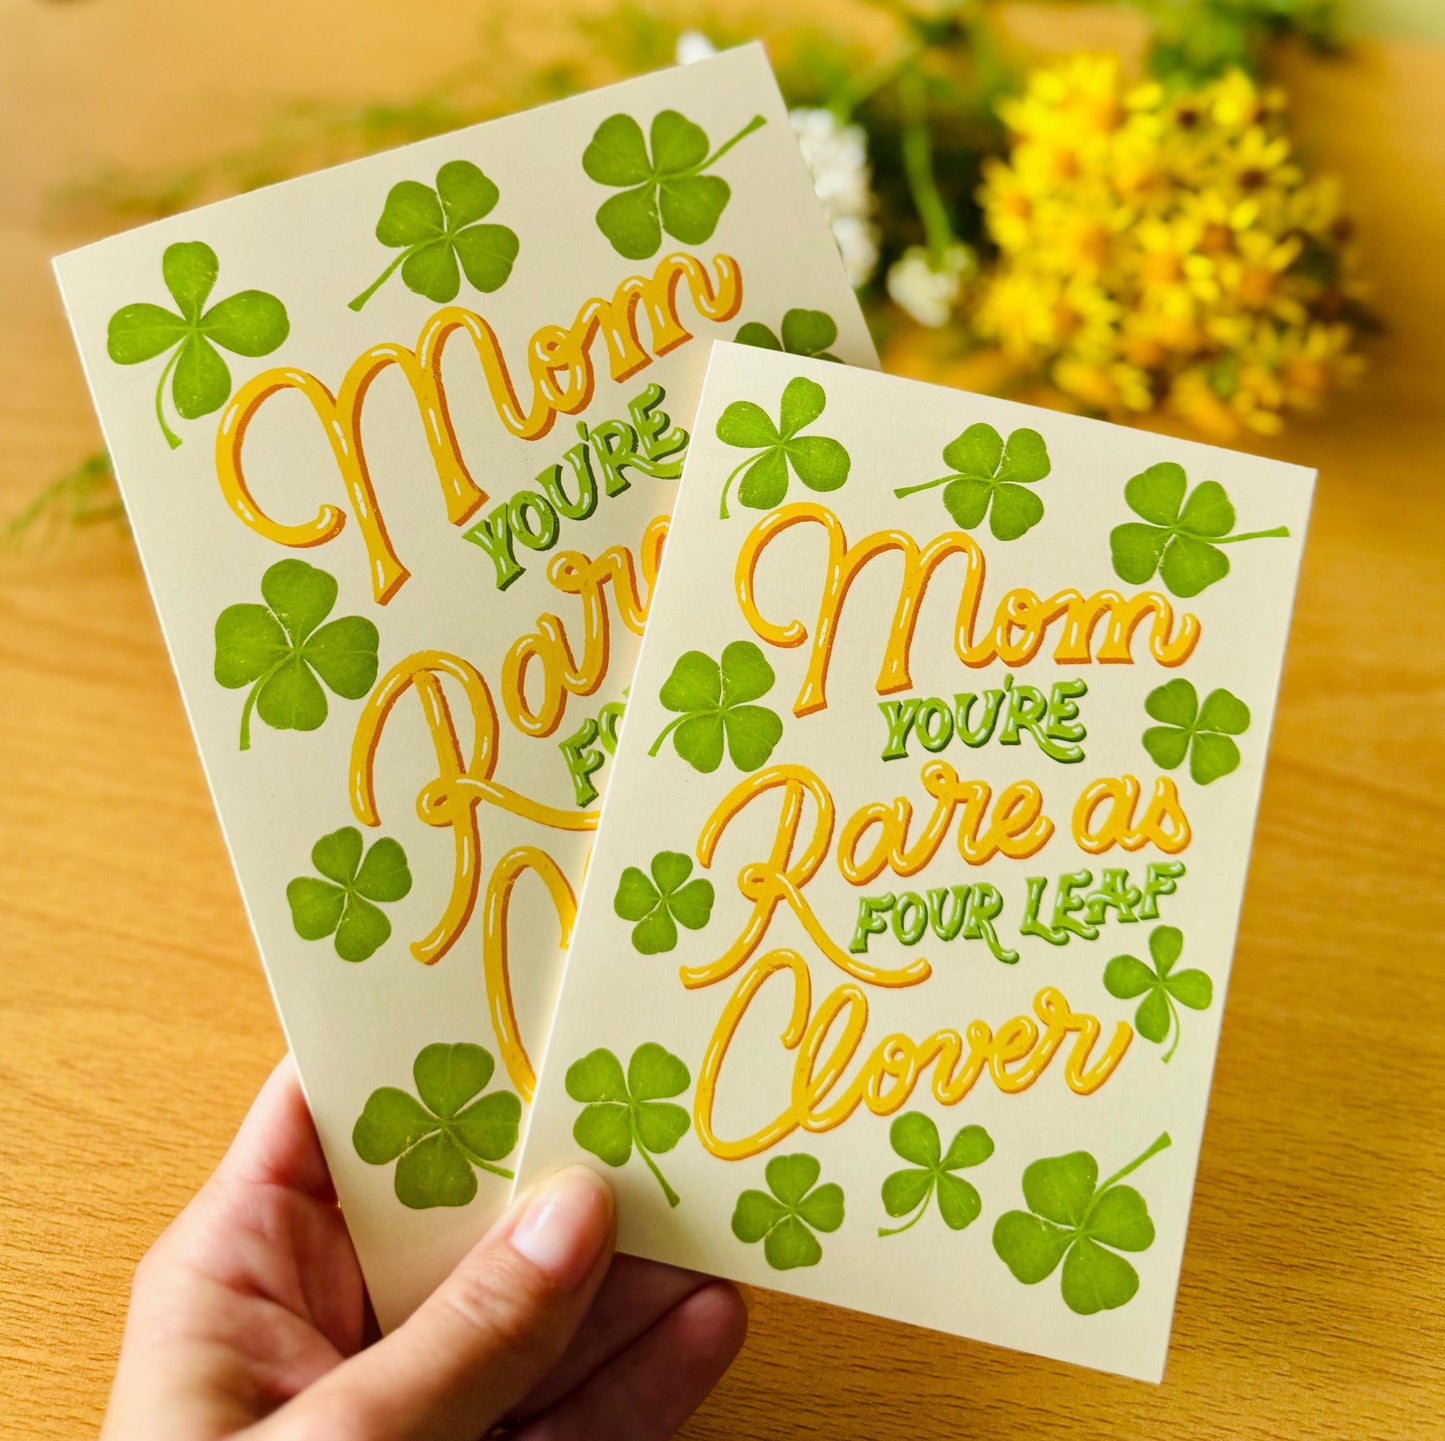 Mom
YOU'RE
Rare
Mom
YOU'RE
Rare as
FOUR LEAF
Clover